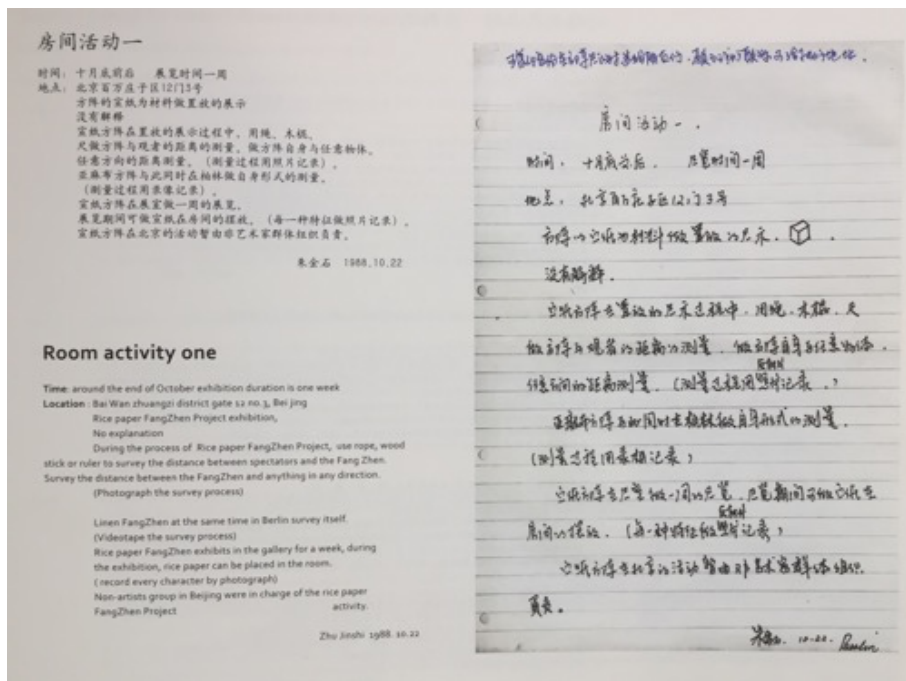 房间活动一
时间：十月底前后　展览时间一周
地点：北京百万庄子区12门3号
方阵的宣纸为材料做置放的展示
没有解释
宣纸方阵在置放的展示过程中，用绳、木棍、
尺做方阵与观者的距离的测量。做方阵自身与任意物体，
任意方向的距离测量。（测量过程用照片记录）。
亚麻布方阵与此同时在柏林做自身形式的测量。
（测量过程用录像记录）。
宣纸方阵在展室做一周的展览。
展览期间可做宣纸在房间的摆放。（每一种特征做照片记录）。
宣纸方阵在北京的活动暂由非艺术家群体组织负责。
朱金石　1988.10.22
Room activity one
Time: around the end of October exhibition duration is one week
Location : Bai Wan zhuangzi district gate 12 no.3, Bei jing
Rice paper FangZhen Project exhibition,
No explanation
During the process of Rice paper FangZhen Project, use rope, wood
stick or ruler to survey the distance between spectators and the Fang Zhen.
Survey the distance between the FangZhen and anything in any direction.
(Photograph the survey process)
Linen FangZhen at the same time in Berlin survey itself.
(Videotape the survey process)
Rice paper FangZhen exhibits in the gallery for a week, during
the exhibition, rice paper can be placed in the room.
( record every character by photograph)
Non-artists group in Beijing were in charge of the rice paper
FangZhen Project activity.
Zhu Jinshi 1988. 10.22
房间活动一.
时间：十月底前后. 展览时间一周
地点：北京百万庄子区12门3号
方阵以宣纸为材料做置放的展示.
没有解释.
宣纸方阵在置放的展示过程中. 用绳. 木棍. 尺
做方阵与观者的距离的测量. 做方阵自身与任意物体.
任意方向的距离测量. (测量过程用照片记录.)
亚麻布方阵与此同时在柏林做自身形式的测量.
(测量过程用录相记录)
宣纸方阵在展室做一周的展览. 展览期间可做宣纸在
房间的摆放. (每一种特征做照片记录)
宣纸方阵在北京的活动暂由非艺术家群体组织
负责。
朱金石. 10.22. Berlin